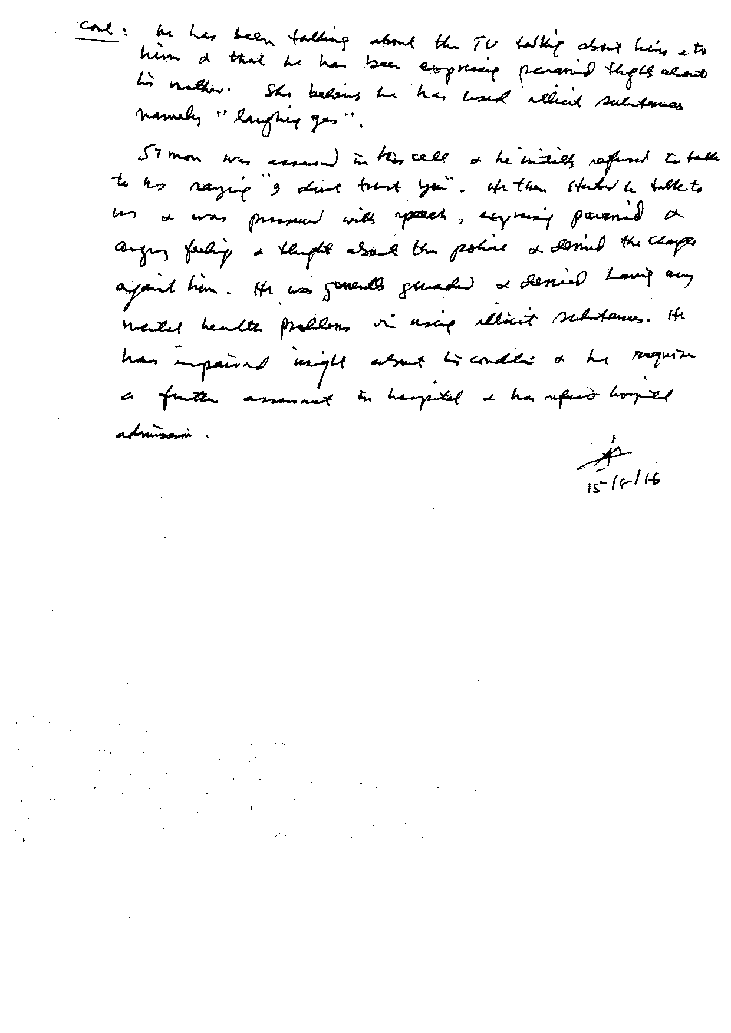 Cont: he has been talking about the TV talking about him & to
him & that he has been expressing paranoid thoughts about
his mother. She believes he has used illicit substances
namely "laughing gas".
Symon was assessed in his cell & he initially refused to talk
to us saying "I don't trust you". He then started to talk to
us & was pressured with speech, expressing paranoid &
angry feelings & thoughts about the police & denied the charges
against him. He was generally guarded & denied having any
mental health problems or using illicit substances. He
has impaired insight about his condition & he requires
a further assessment in hospital & has refused hospital
admission.
15/8/16